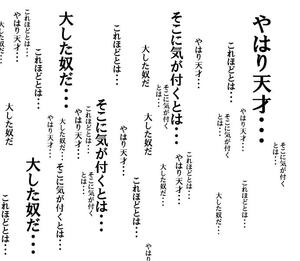 そこに気が付く
とは…
やはり天才・・・
大した奴だ
これほどとは…
これほどとは…
そこに気が付く
とは…
大した奴だ…
やはり天才…
これほどとは…
そこに気が付くとは・・・
そこに気が付く
とは…
やはり天才…
大した奴だ…
大した奴だ
大した奴だ
やはり
これほどとは…
やはり天才
そこに気が付くとは・・・
これほどとは…
そこに気が付く
とは…
やはり天才…
大した奴だ・・・
大した奴だ…
そこに気が付くとは…
やはり天才…
これほどとは・・・
大した奴だ・・・
これほどとは…
やはり天才…
大した奴だ
これほどとは…
これほどとは…